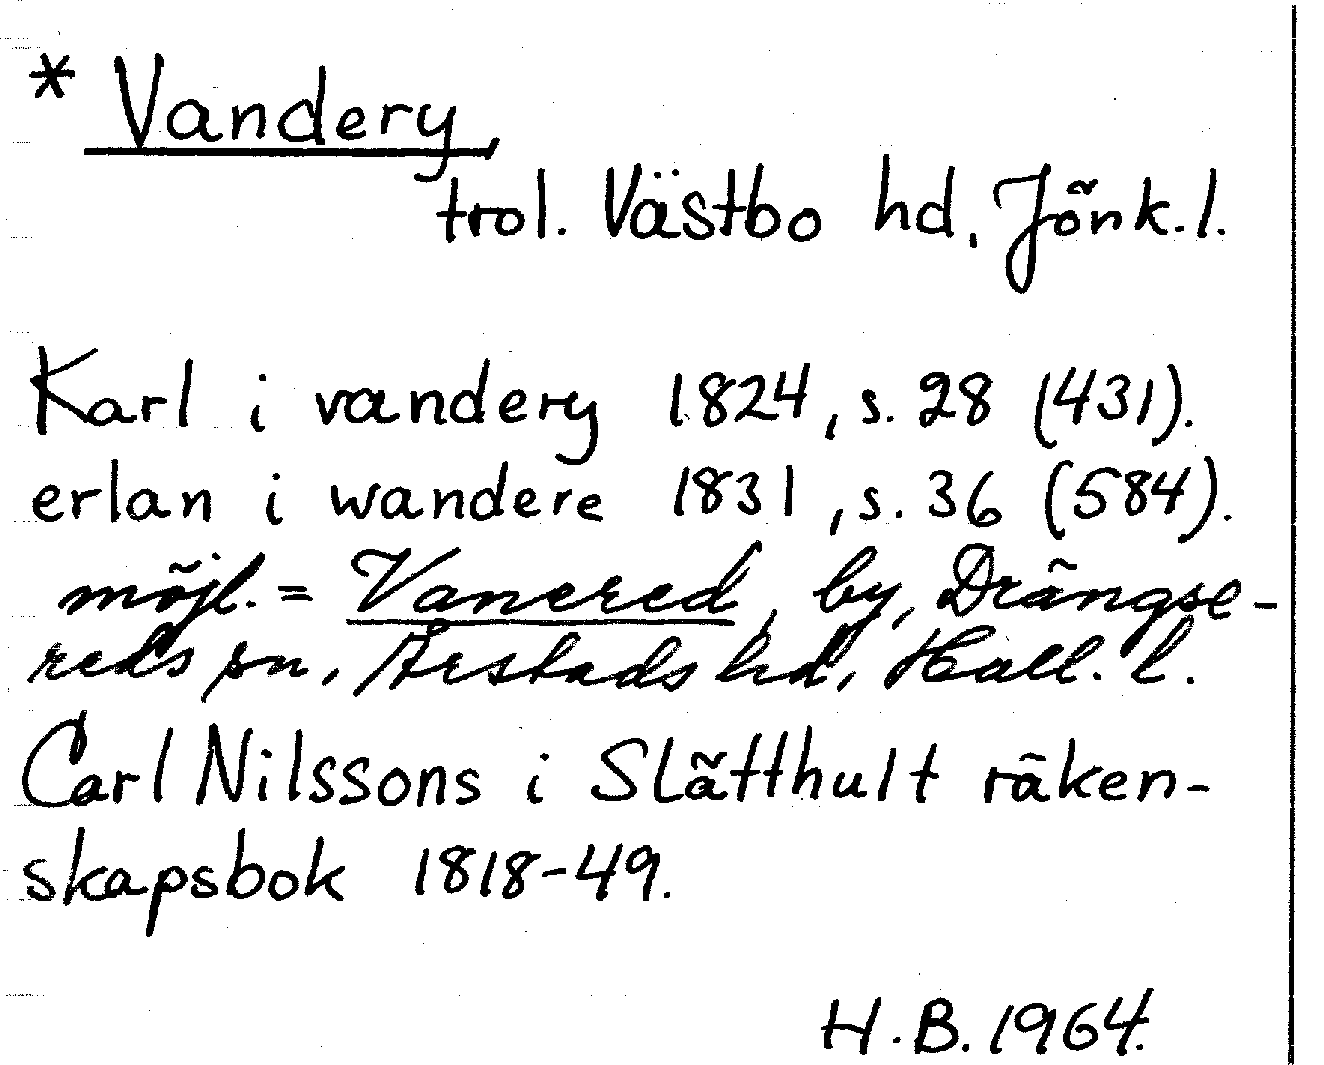 * Vandery,
trol. Västbo hd, Jönk. l.
Karl i vandery 1824, s. 28 (431).
erlan i wandere 1831, s. 36 (584).
möjl. = Vanered, by, Drängse-
reds sn, Årstads hd, Hall. l.
Carl Nilssons i Slätthult räken-
skapsbok 1818-49.
H.B. 1964.